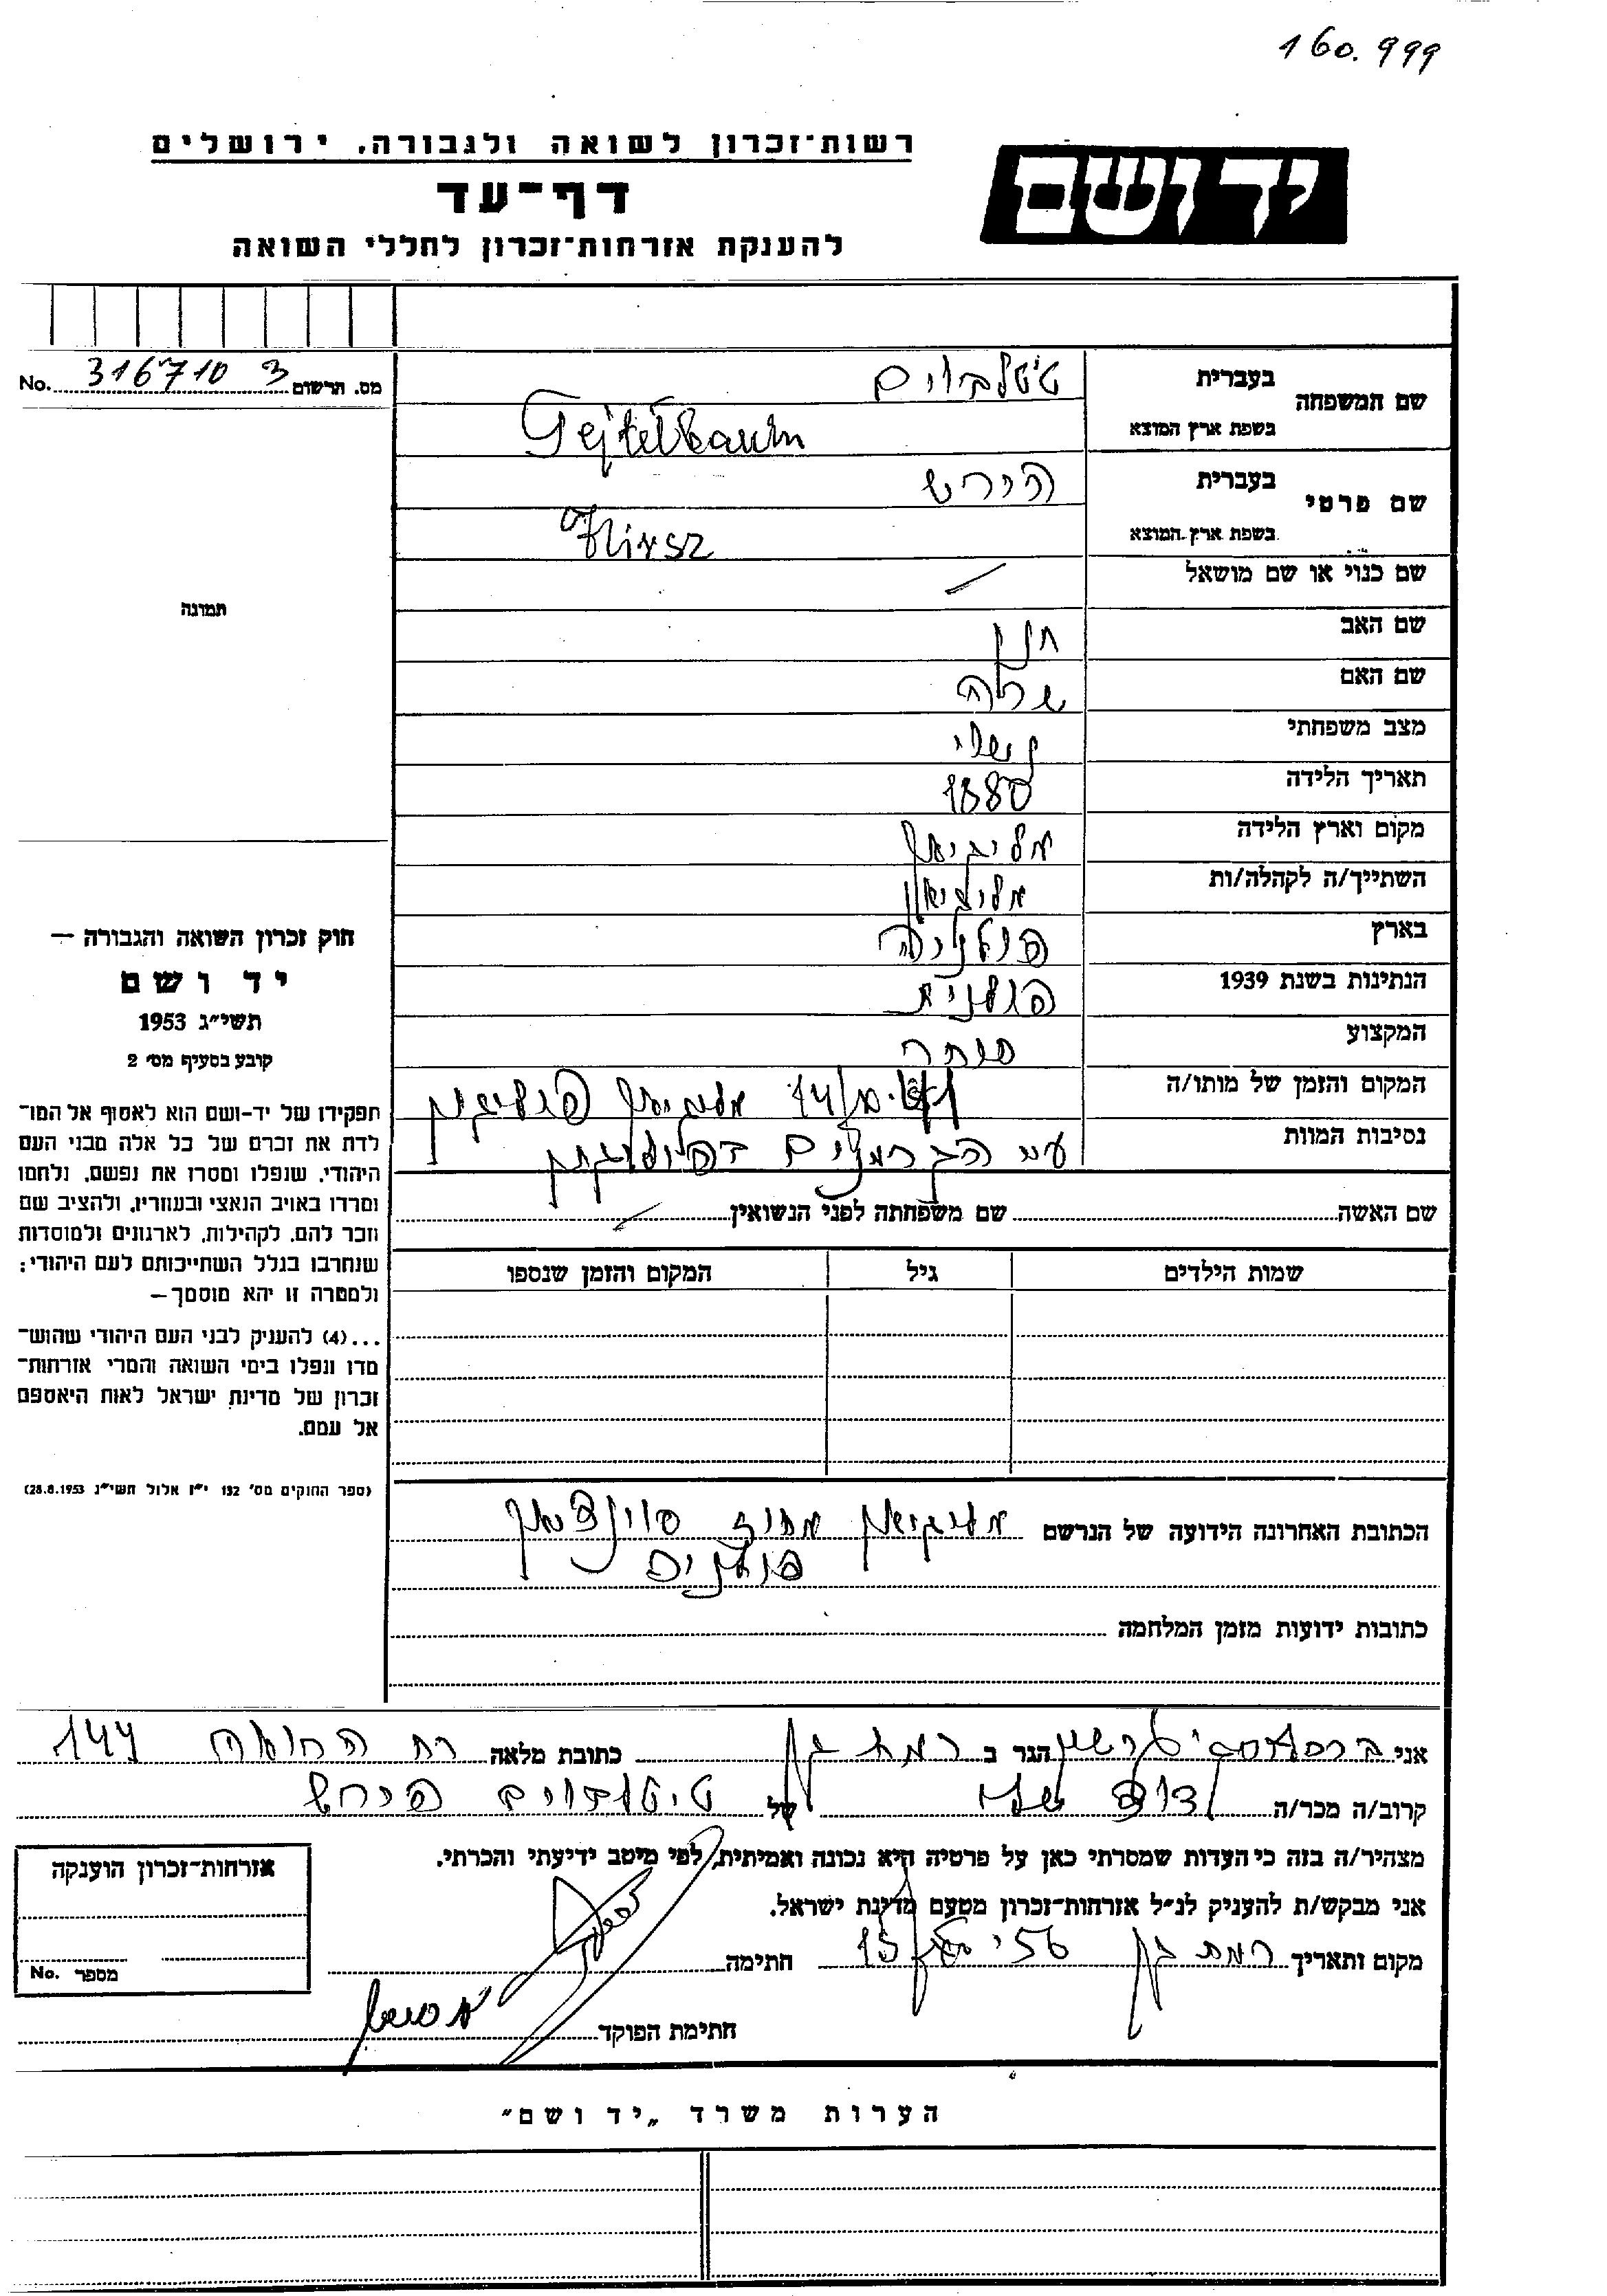 160.999
רשות־זכרון לשואה ולגבורה, ירושלים
דף־עד
להענקת אזרחות־זכרון לחללי השואה
יד ושם
No. 316710 3 מס. תרשום
שם המשפחה
בעברית טיטלבוים
בשפת ארץ המוצא Tejtelbaum
שם פרטי
בעברית הירש
בשפת ארץ המוצא Hirsz
שם כנוי או שם מושאל
שם האב חנן
שם האם שרה
מצב משפחתי נשוי
תאריך הלידה 1880
מקום וארץ הלידה
השתייך/ה לקהלה/ות
בארץ פולניה
הנתינות בשנת 1939 פולנית
המקצוע סוחר
המקום והזמן של מותו/ה
נסיבות המוות ע״י הגרמנים
שם האשה שם משפחתה לפני הנשואין
שמות הילדים גיל המקום והזמן שנספו
תמונה
חוק זכרון השואה והגבורה —
יד ושם
תשי״ג 1953
קובע בסעיף מס׳ 2
תפקידו של יד-ושם הוא לאסוף אל המו־
לדת את זכרם של כל אלה מבני העם
היהודי, שנפלו ומסרו את נפשם, נלחמו
ומרדו באויב הנאצי ובעוזריו, ולהציב שם
וזכר להם, לקהילות, לארגונים ולמוסדות
שנחרבו בגלל השתייכותם לעם היהודי;
ולמטרה זו יהא מוסמך—
...(4) להעניק לבני העם היהודי שהוש־
מדו ונפלו בימי השואה והמרי אזרחות־
זכרון של מדינת ישראל לאות היאספם
אל עמם.
(ספר החוקים מס׳ 132 י״ז אלול תשי״ג 28.8.1953)
הכתובת האחרונה הידועה של הנרשם מחוז
כתובות ידועות מזמן המלחמה
אני הגר ב רמת גן כתובת מלאה רח הרואה 144
קרוב/ה מכר/ה של טיטלבוים הירש
מצהיר/ה בזה כי העדות שמסרתי כאן על פרטיה היא נכונה ואמיתית, לפי מיטב ידיעתי והכרתי.
אני מבקש/ת להעניק לנ״ל אזרחות־זכרון מטעם מדינת ישראל.
מקום ותאריך רמת גן חתימה
חתימת הפוקד
אזרחות־זכרון הוענקה
No. מספר
הערות משרד „יד ושם״